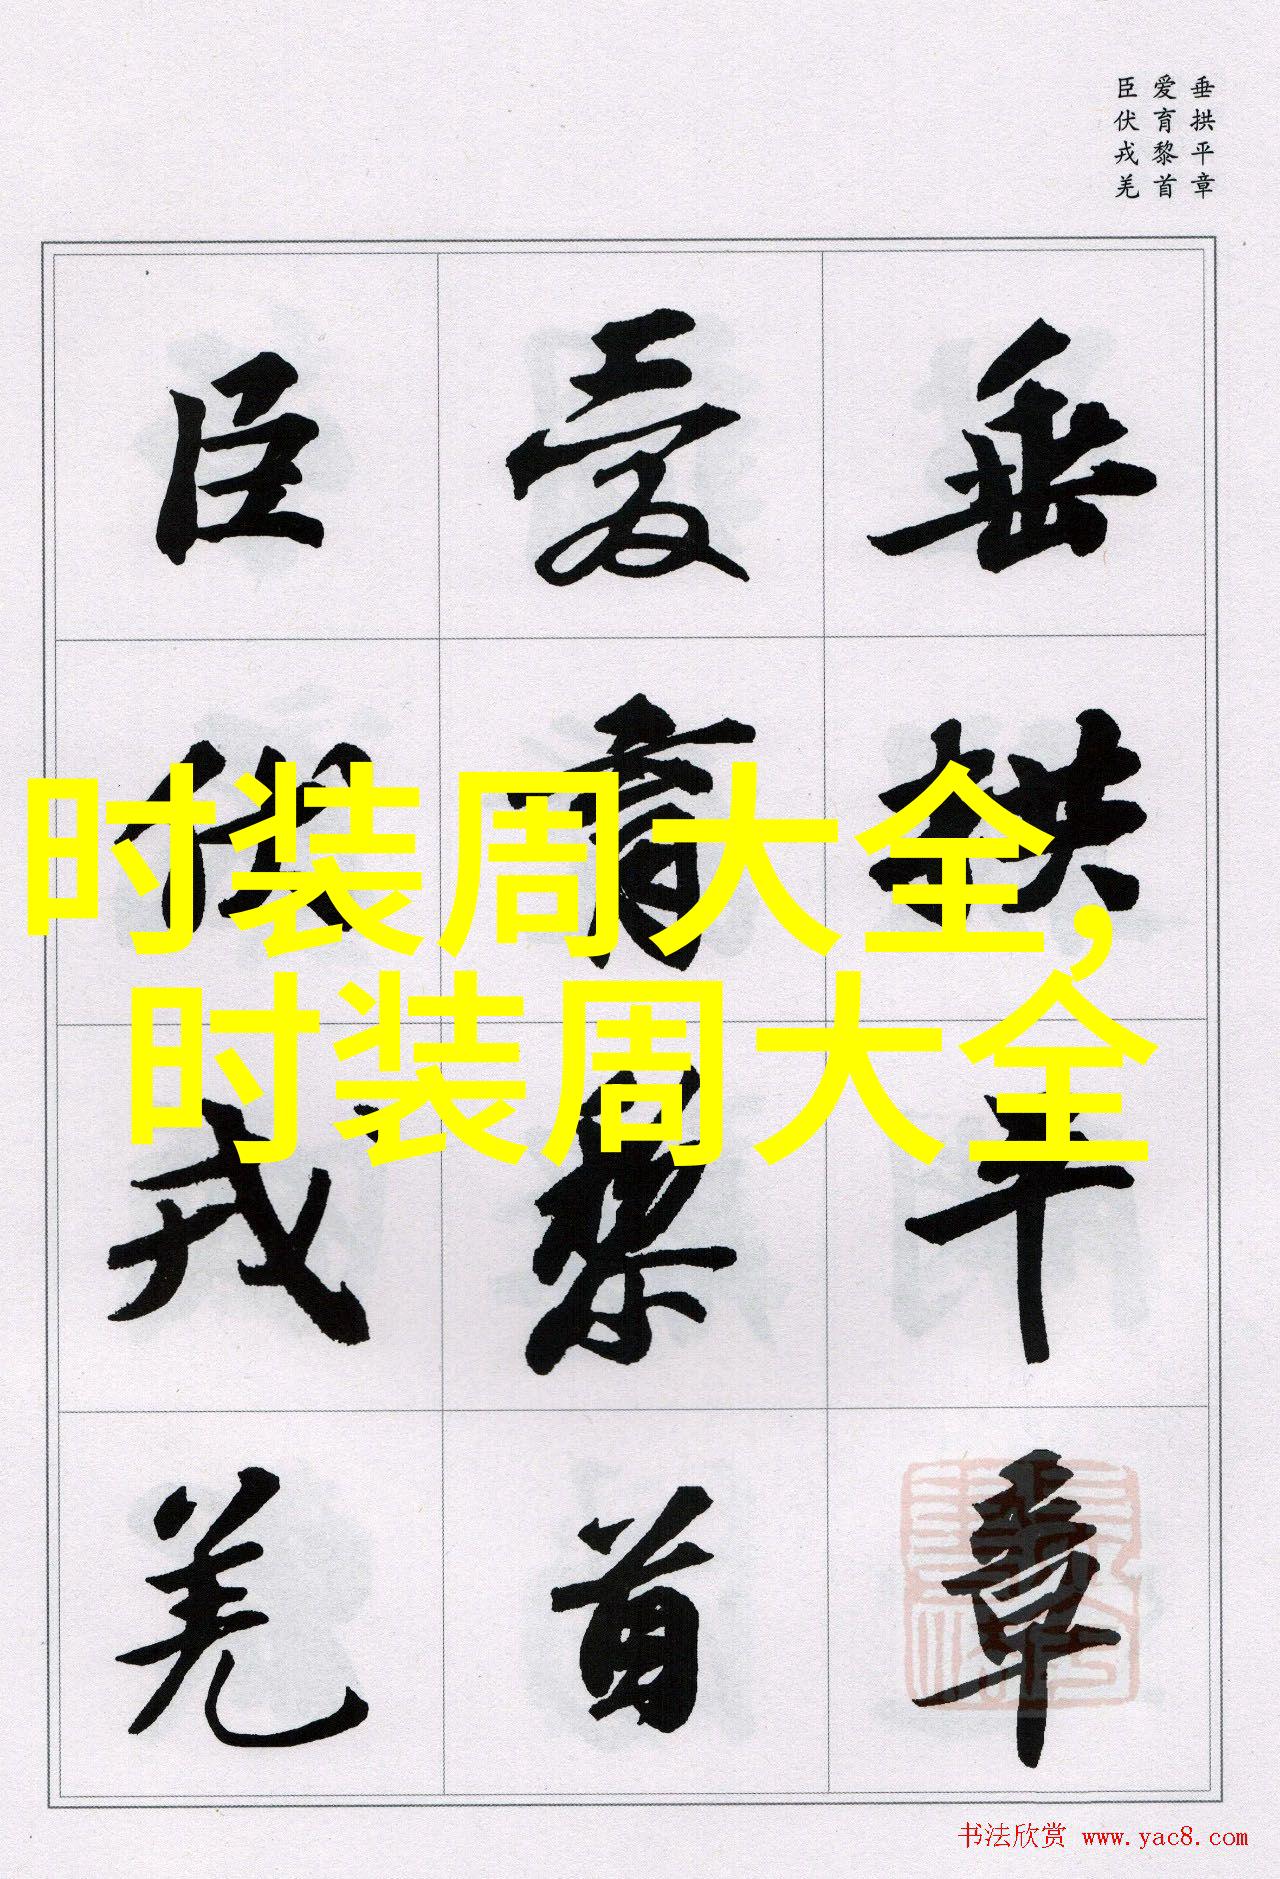 垂拱平章
爱育黎首
臣伏戎羌
垂拱平章
爱育黎首
臣伏戎羌
时装周大全,
时装周大全
书法欣赏 www.yac8.com